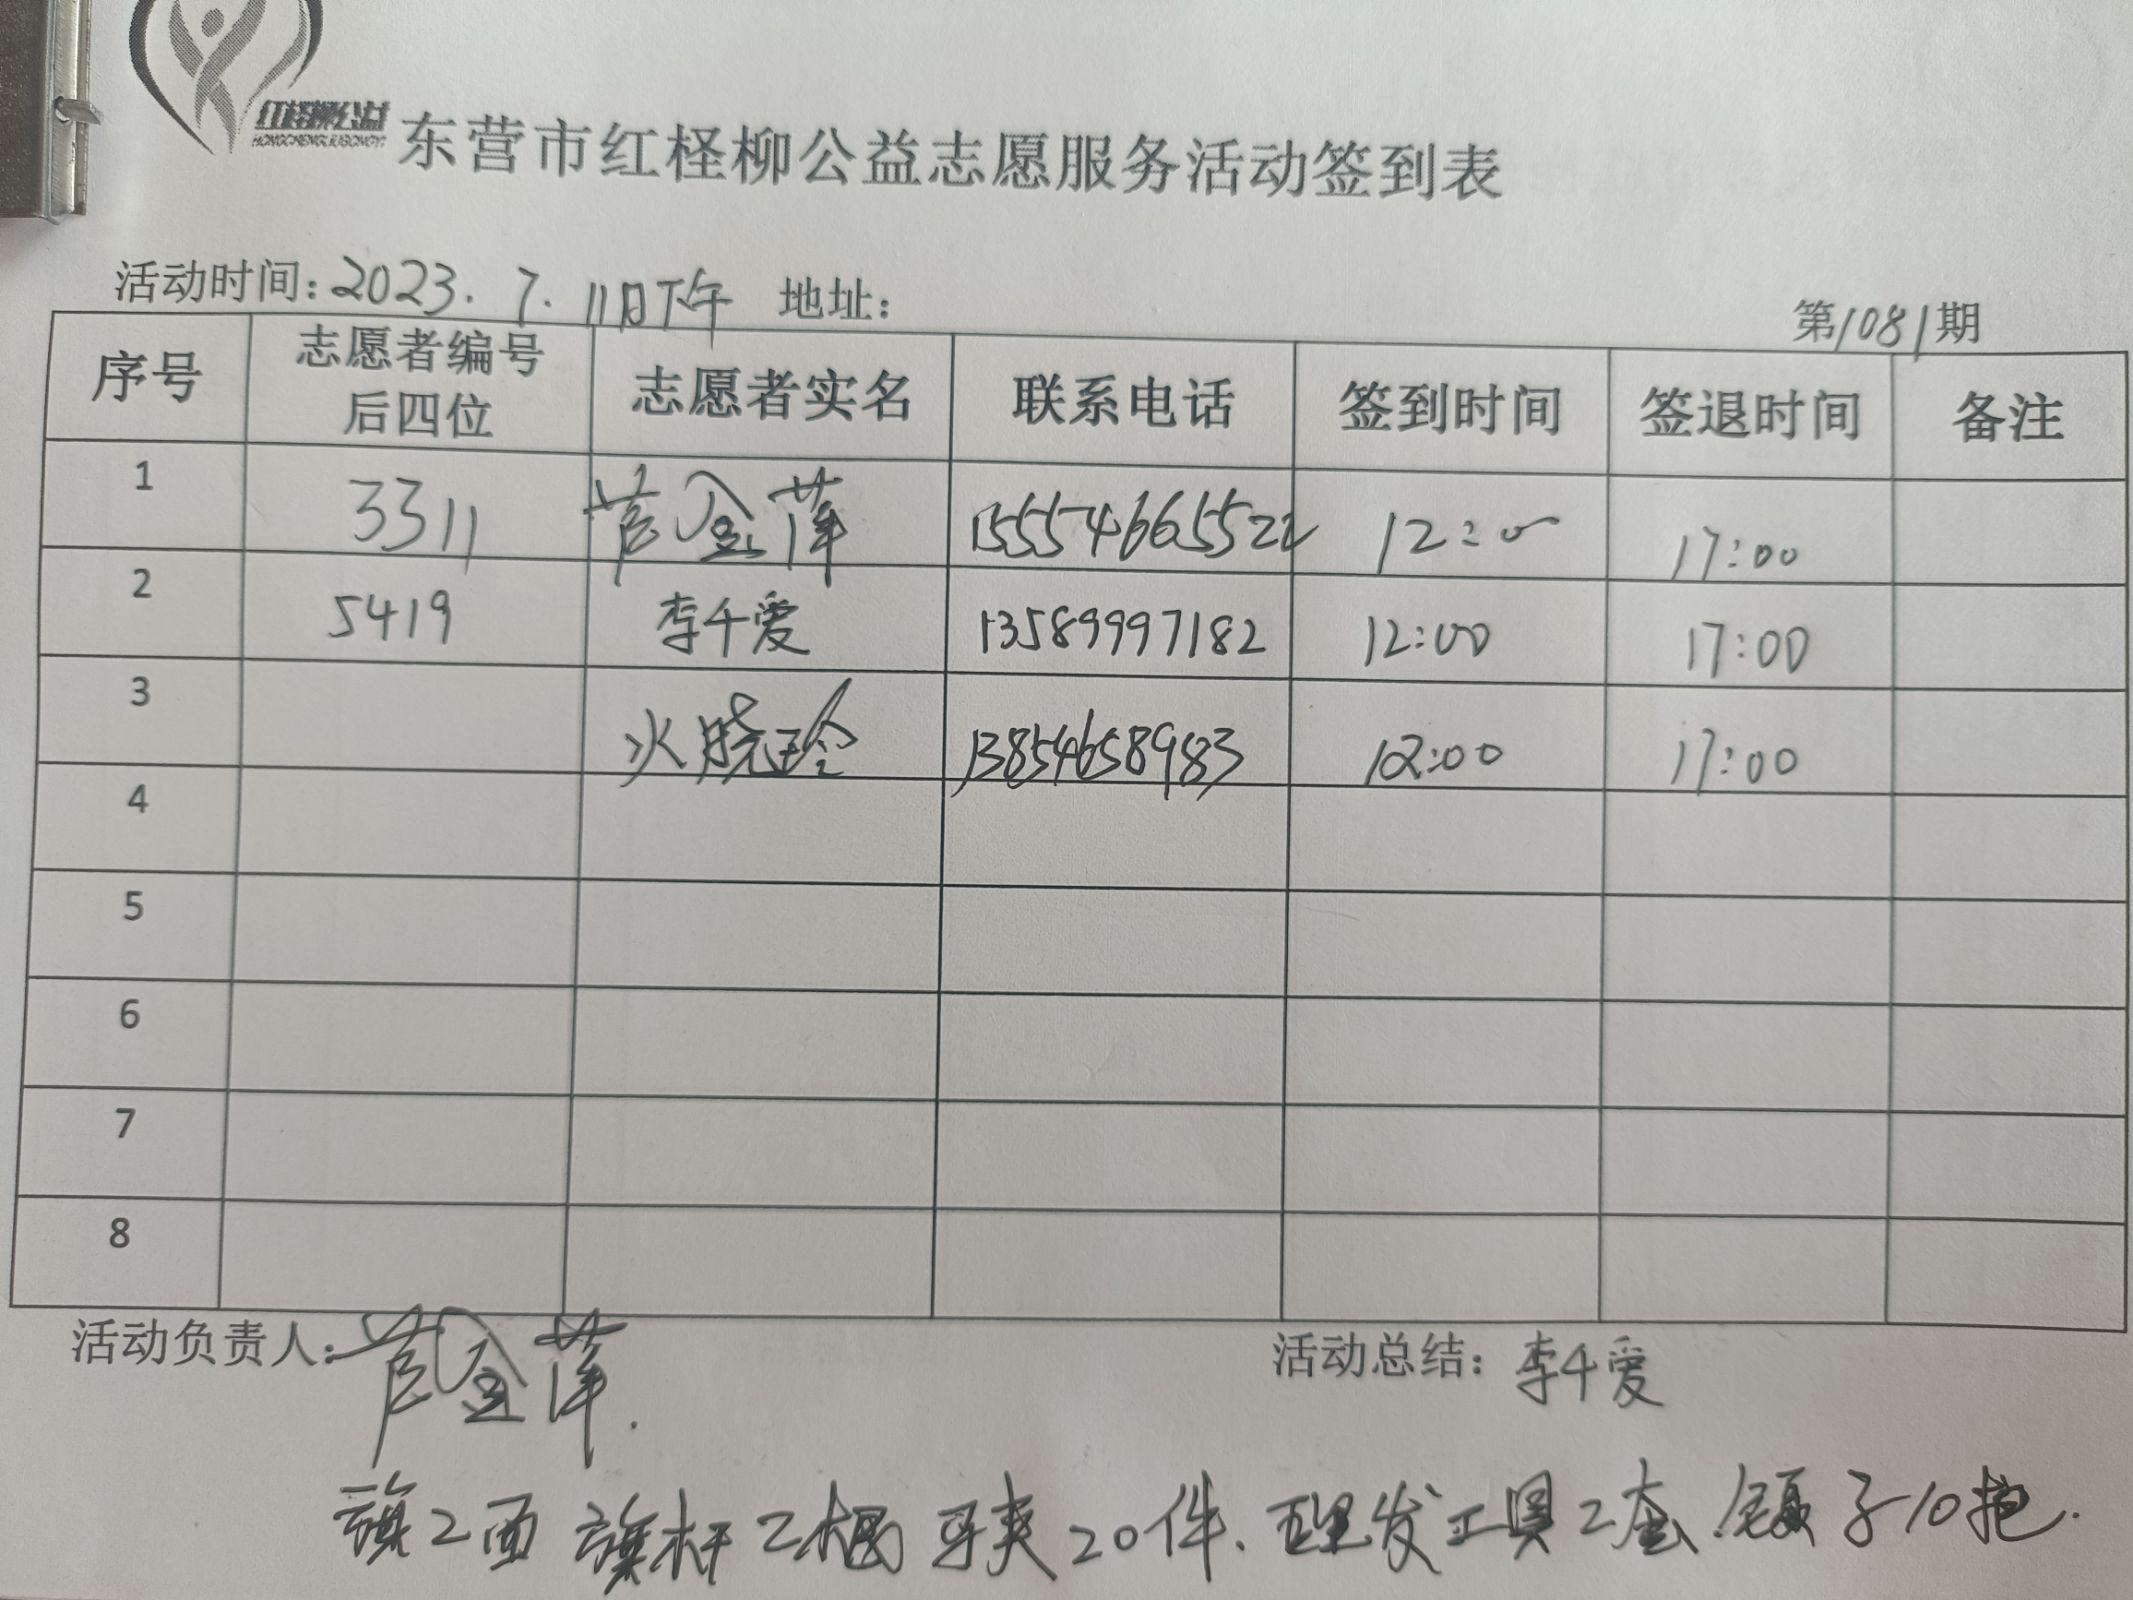 红柽柳公益
HONGCHENGLIUGONGYI
东营市红柽柳公益志愿服务活动签到表
活动时间:2023.7.11日下午 地址:
第1081期
序号 志愿者编号后四位 志愿者实名 联系电话 签到时间 签退时间 备注
1 3311 金萍 15554665522 12:00 17:00
2 5419 李千爱 13589997182 12:00 17:00
3 晓玲 13854658983 12:00 17:00
4
5
6
7
8
活动负责人: 金萍. 活动总结:李千爱
旗2面 旗杆2根 马夹20件、理发工具2套.镊子10把.